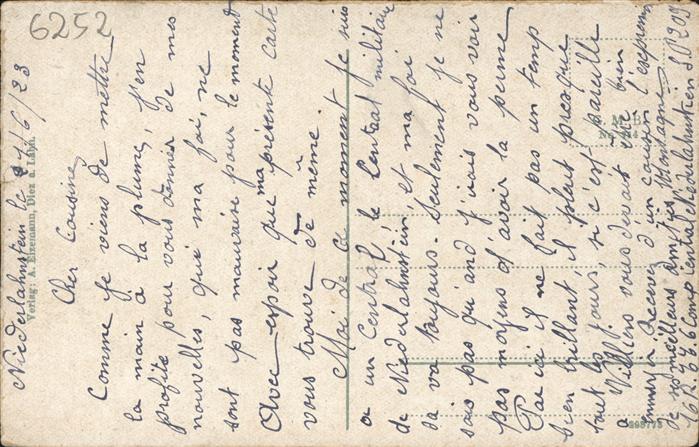 6252
Niederlahnstein le 27/6/23
Verlag: A. Elzemann, Diez a. Lahn.
Cher Cousine
Comme je viens de mettre
la main à la plume, j'en
profite pour vous donner de mes
nouvelles, qui ma foi, ne
sont pas mauvaise pour le moment
Avec espoir que ma présente carte
vous trouve de même.
Moi de ce moment je suis
a un Central le Central militaire
de Niederlahnstein et ma foi
sa va toujours. Seulement je ne
sais pas quand j'irais vous voir
pas moyens d'avoir la perme
Par ici il ne fait pas un temp
bien brillant, il pleut presque
tout les jours, si c'est pareille
a Villiers vous devait être bien
Recevez d'un cousin
meilleurs Amities
Central Niederlahnstein S.P 209